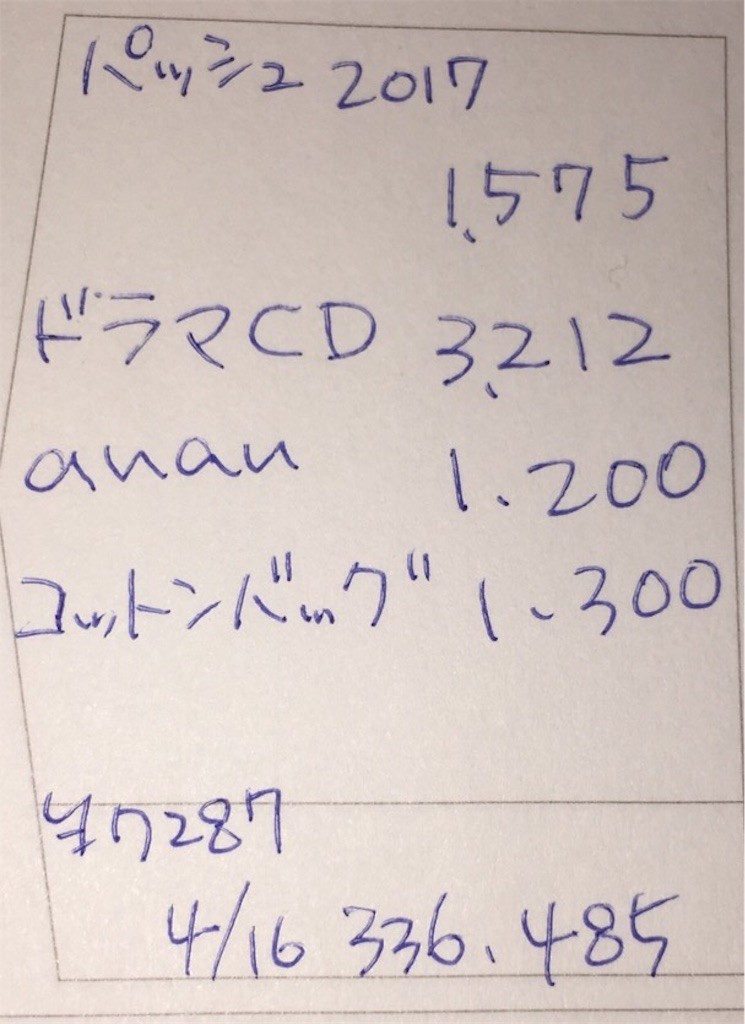 パッシュ 2017
1,575
ドラマCD 3,212
anan 1、200
コットンバッグ 1、300
¥7287
4/16 336、485